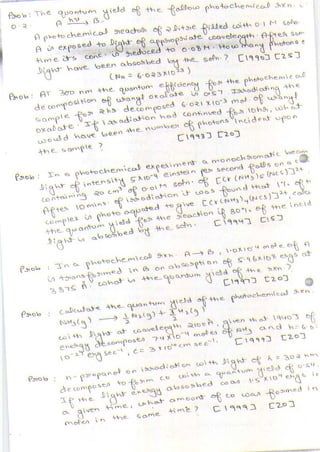 Prob: The quantum yield of the follow photochemical rxn. is
0.2. A hν→ B.
A photochemical reactor of 2 litre filled with 0.1 M soln
A is exposed to light of appropriate wavelength. After sum
time its conc. reduced to 0.08M. How many photons of
light have been absorbed by the soln. ? [1990] [25]
(No = 6.023×10²³)
Prob: AT 300 nm the quantum efficiency for the photochemical
decomposition of uranyl oxalate is 0.57. Irradiating the
sample for 2hrs decomposed mol of uranyl
oxalate. If irradiation had continued for 10hrs, what
would have been the number of photons incident upon
the sample ? [1993] [20]
Prob: In a photochemical experiment a monochromatic beam
light of intensity 5×10⁻⁸ einstein per second falls on a
containing 20 cm³ of 0.01M soln. of
After 10mins. of irradiation it was found that 1% of
complex is photo aquated to give
the quantum yield for the reaction if 80% of the incid
light is absorbed by the soln. [1994] [15]
Prob: In a photochemical rxn. A → B, 1.0×10⁻⁵ mole of A
is transformed in B on absorption of ergs at
Å what is the quantum yield of the rxn ?
[1997] [20]
Prob: calculate the quantum yield of the photochemical rxn.
NH₃(g) → ½ N₂(g) + 3/2 H₂(g)
with light at wavelength 2100Å, given that 1940J of
energy decomposes moles of NH₃ and h= 6.6
10⁻²⁷ erg sec⁻¹, c= 3×10¹⁰ cm sec⁻¹. [1999] [20]
Prob: n-propanal on irradiation with light of λ = 302 nm
decomposes to form CO with a quantum yield of 0.54.
If the light energy absorbed was ergs in
a given time, what amount of CO was formed in
moles in the same time ? [1999] [20]